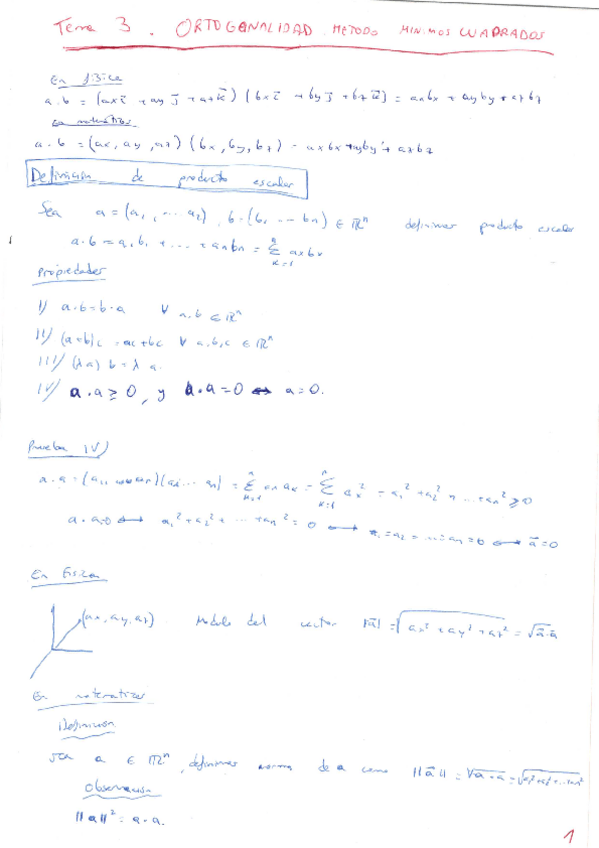 Tema 3. ORTOGONALIDAD. METODO MINIMOS CUADRADOS
En física
a.b = (ax i + ay j + az k) (bx i + by j + bz k) = axbx + ayby + azbz
En matemáticas
a.b = (ax, ay, az) (bx, by, bz) = axbx + ayby + azbz
Definición de producto escalar
Sea a = (a1, ... a2), b = (b1, ... bn) ∈ ℝⁿ definimos producto escalar
a.b = a1b1 + ... + anbn = Σ akbk
k=1
Propiedades
I/ a.b = b.a ∀ a,b ∈ ℝⁿ
II/ (a+b)c = ac + bc ∀ a,b,c ∈ ℝⁿ
III/ (λa) b = λ a.
IV/ a.a ≥ 0, y a.a = 0 ⟷ a = 0.
Prueba IV)
= Σ ak² = a1² + a2² + ... + an² ≥ 0
a.a=0 ⟷ a1² + a2² + ... + an² = 0 ⟷ a1 = a2 = ... = an = 0 ⟷ a = 0
En física
(ax, ay, az) Modulo del vector |a| = √ax² + ay² + az² = √a.a
En matematicas
Definición
Sea a ∈ ℝⁿ, definimos norma de a como ||a|| = √a.a = √a1² + a2² + ... an²
Observación
||a||² = a.a.
1